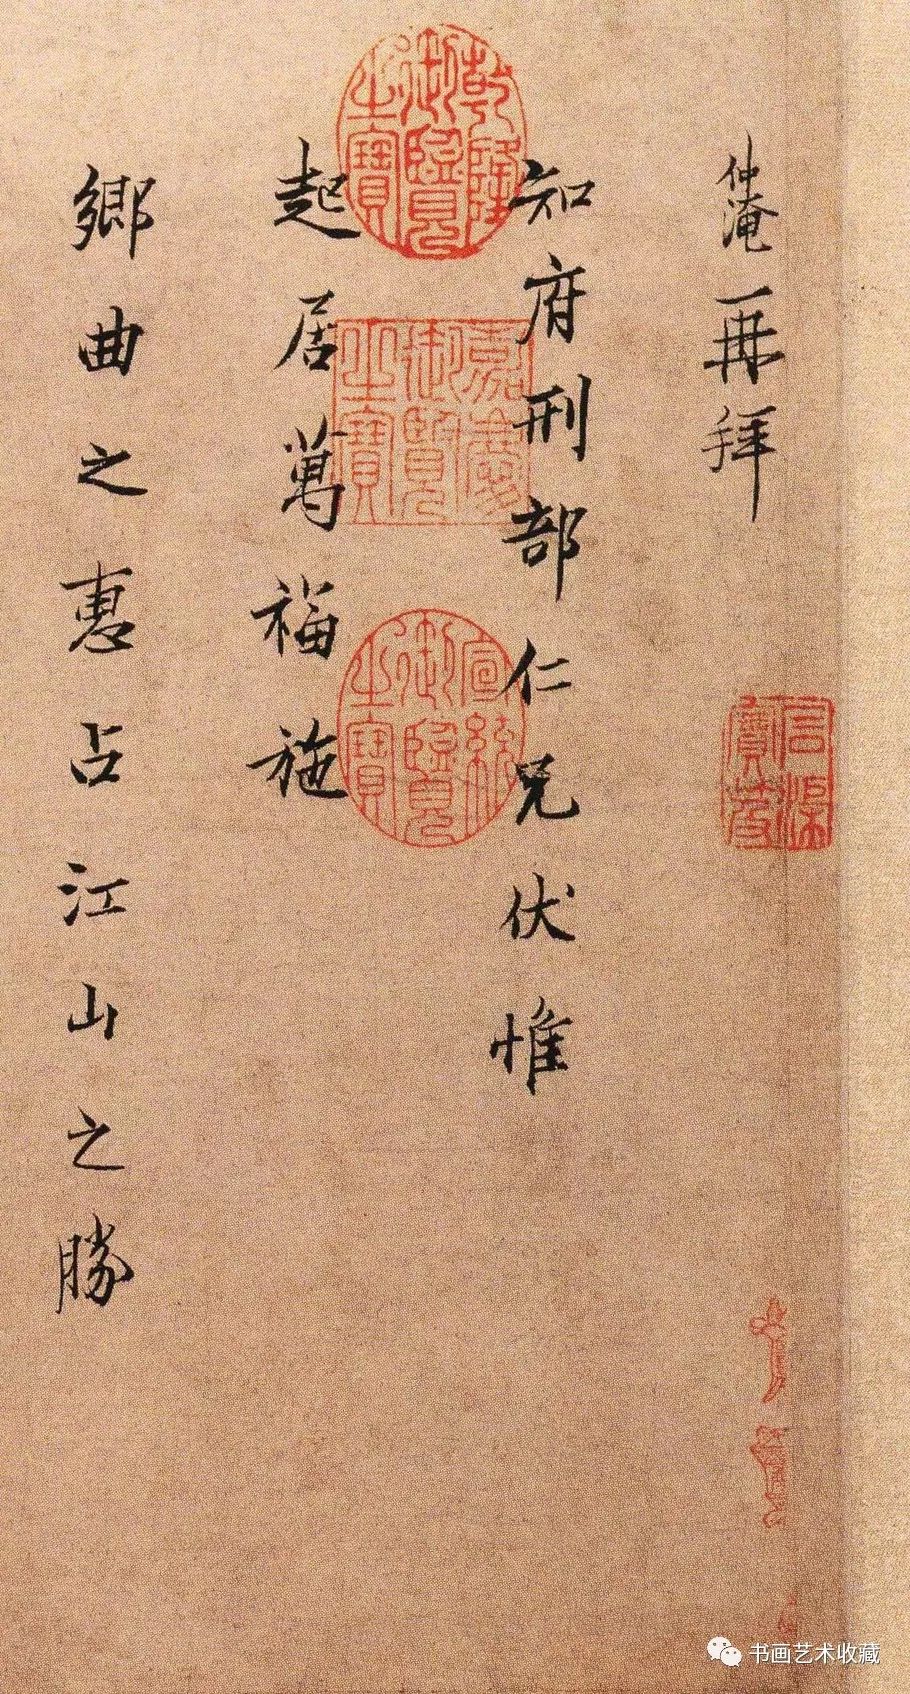 仲淹再拜
知府刑部仁兄伏惟
起居萬福施
鄉曲之惠占江山之勝
乾隆御覽之寶
嘉慶御覽之寶
宣統御覽之寶
书画艺术收藏